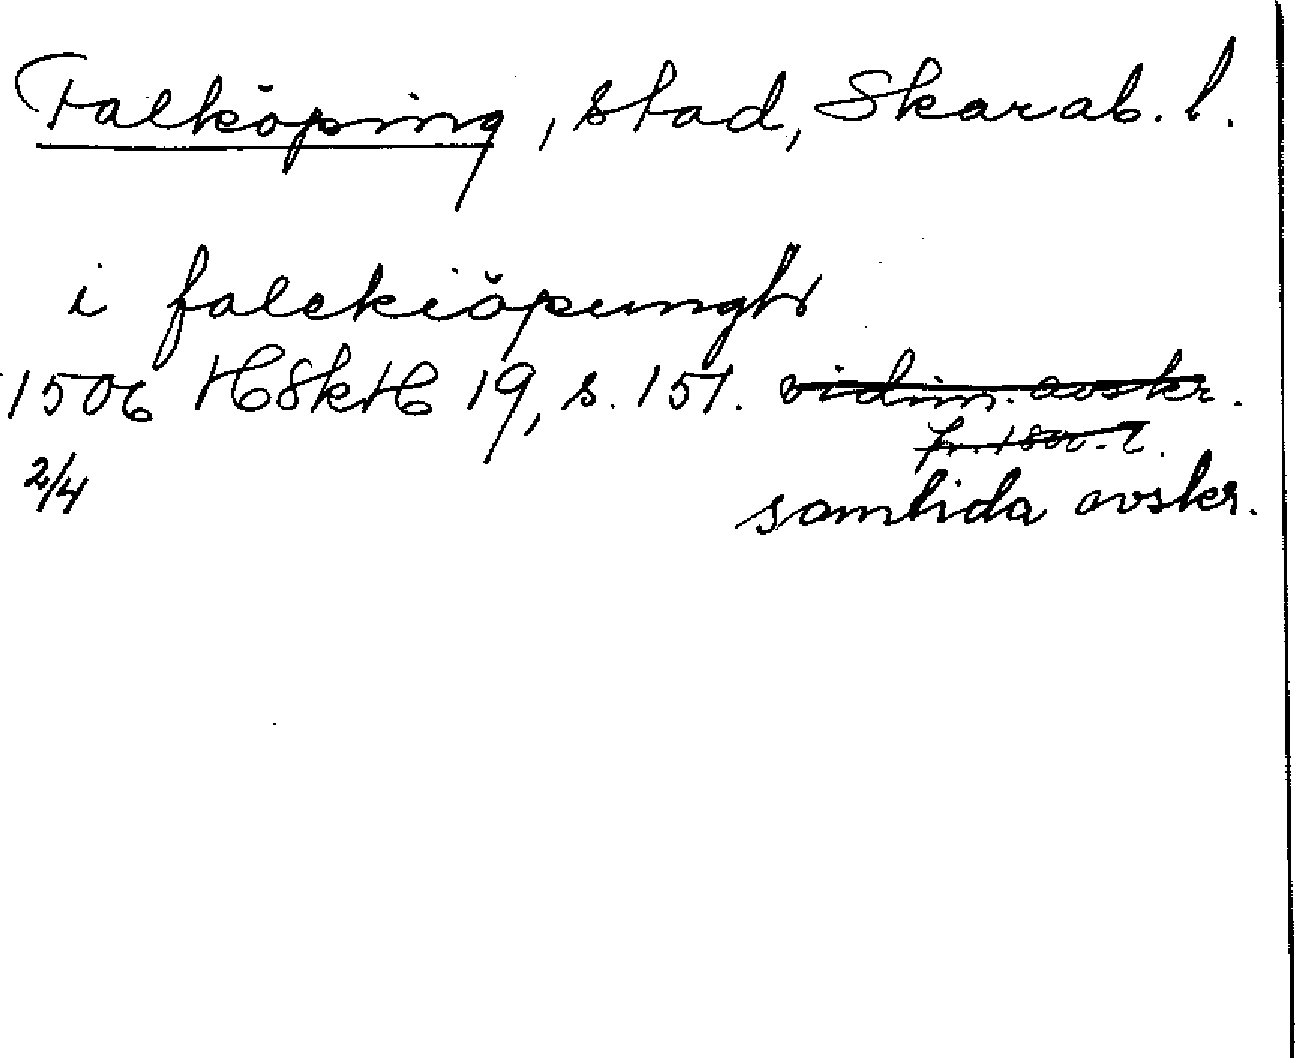 Falköping, stad, Skarab. l.
i falckiöpungh
1506 HSkH 19, s. 151. vidim. avskr.
fr. 1800-t.
2/4
samtida avskr.